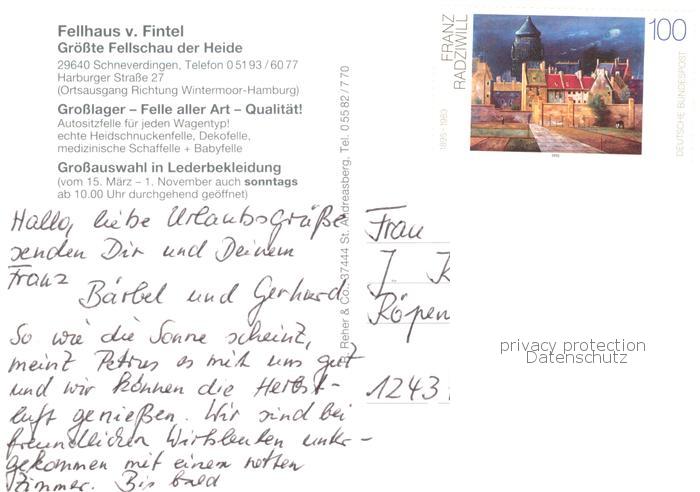 Fellhaus v. Fintel
Größte Fellschau der Heide
29640 Schneverdingen, Telefon 0 51 93 / 60 77
Harburger Straße 27
(Ortsausgang Richtung Wintermoor-Hamburg)
Großlager – Felle aller Art – Qualität!
Autositzfelle für jeden Wagentyp!
echte Heidschnuckenfelle, Dekofelle,
medizinische Schaffelle + Babyfelle
Großauswahl in Lederbekleidung
(vom 15. März – 1. November auch sonntags
ab 10.00 Uhr durchgehend geöffnet)
Hallo, liebe Urlaubsgrüße
senden Dir und Deinem
Franz
Bärbel und Gerhard
So wie die Sonne scheint,
meint Petrus es mit uns gut
und wir können die Herbst-
luft genießen. Wir sind bei
freundlichen Wirtsleuten unter-
gekommen mit einem netten
Zimmer. Bis bald
Reher & Co., 37444 St. Andreasberg, Tel. 0 55 82 / 7 70
FRANZ
RADZIWILL
1895-1983
100
DEUTSCHE BUNDESPOST
1995
Frau
J. K
Röpen
1243
privacy protection
Datenschutz